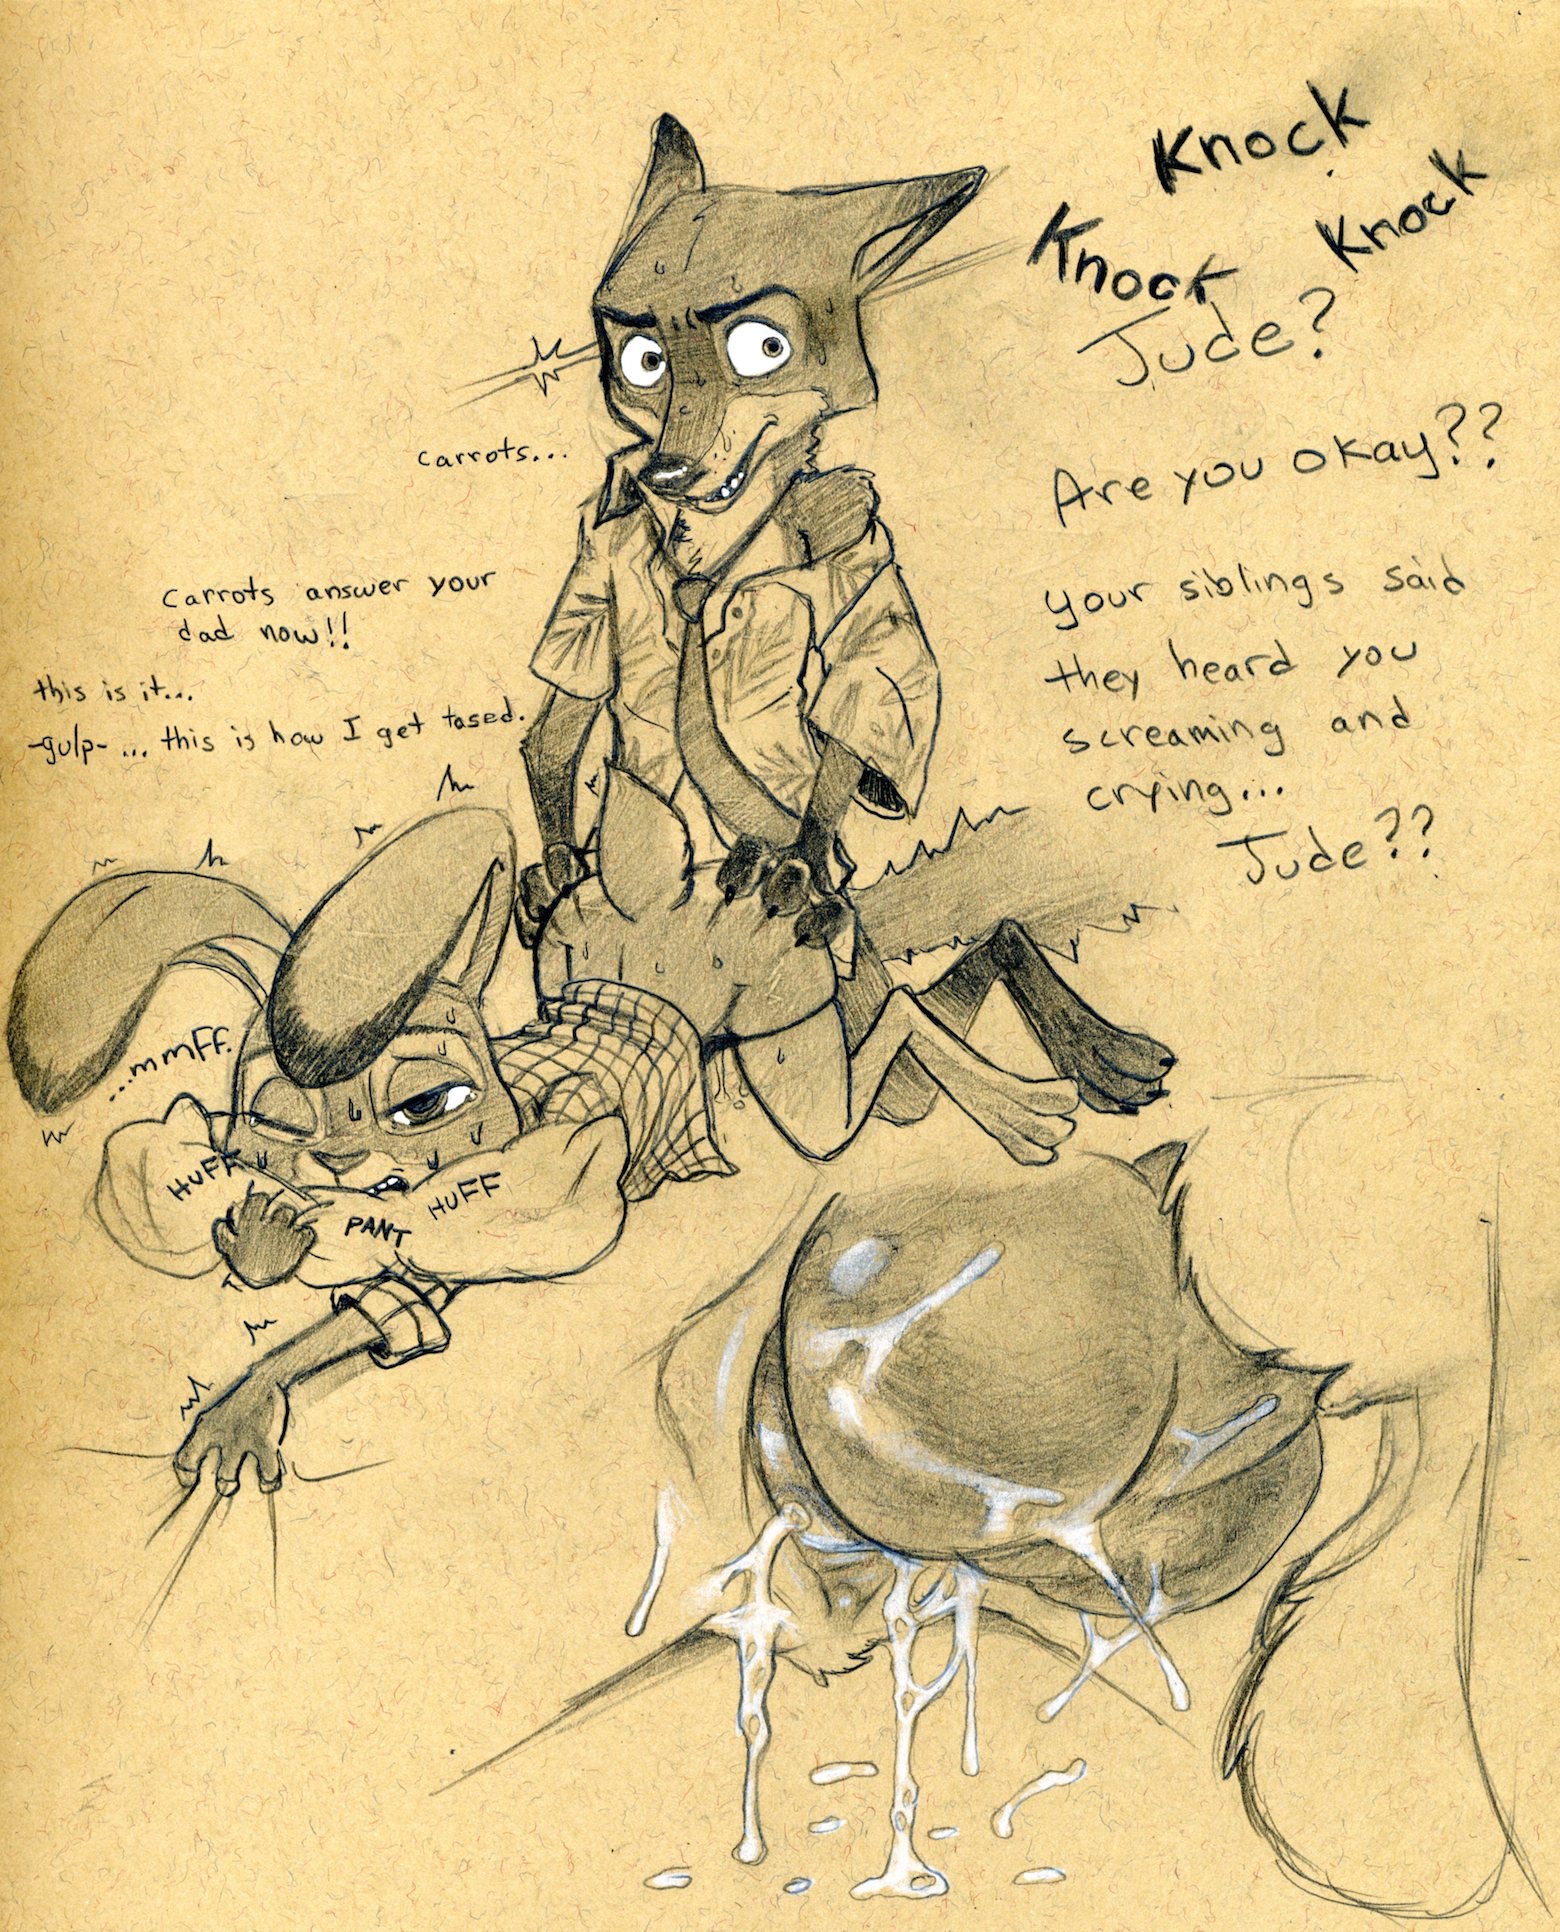 Knock
Knock
Knock
Jude?
Are you okay??
your siblings said
they heard you
screaming and
crying...
Jude??
carrots...
carrots answer your
dad now!!
this is it...
-gulp- ... this is how I get tased.
...mmff.
HUFF
PANT
HUFF